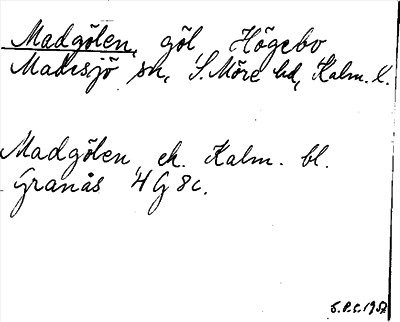 Madgölen, göl, Högebo
Madesjö sn, S. Möre hd, Kalm. l.
Madgölen ek. Kalm. bl.
Granås 4G 8c.
S.P.C. 1952